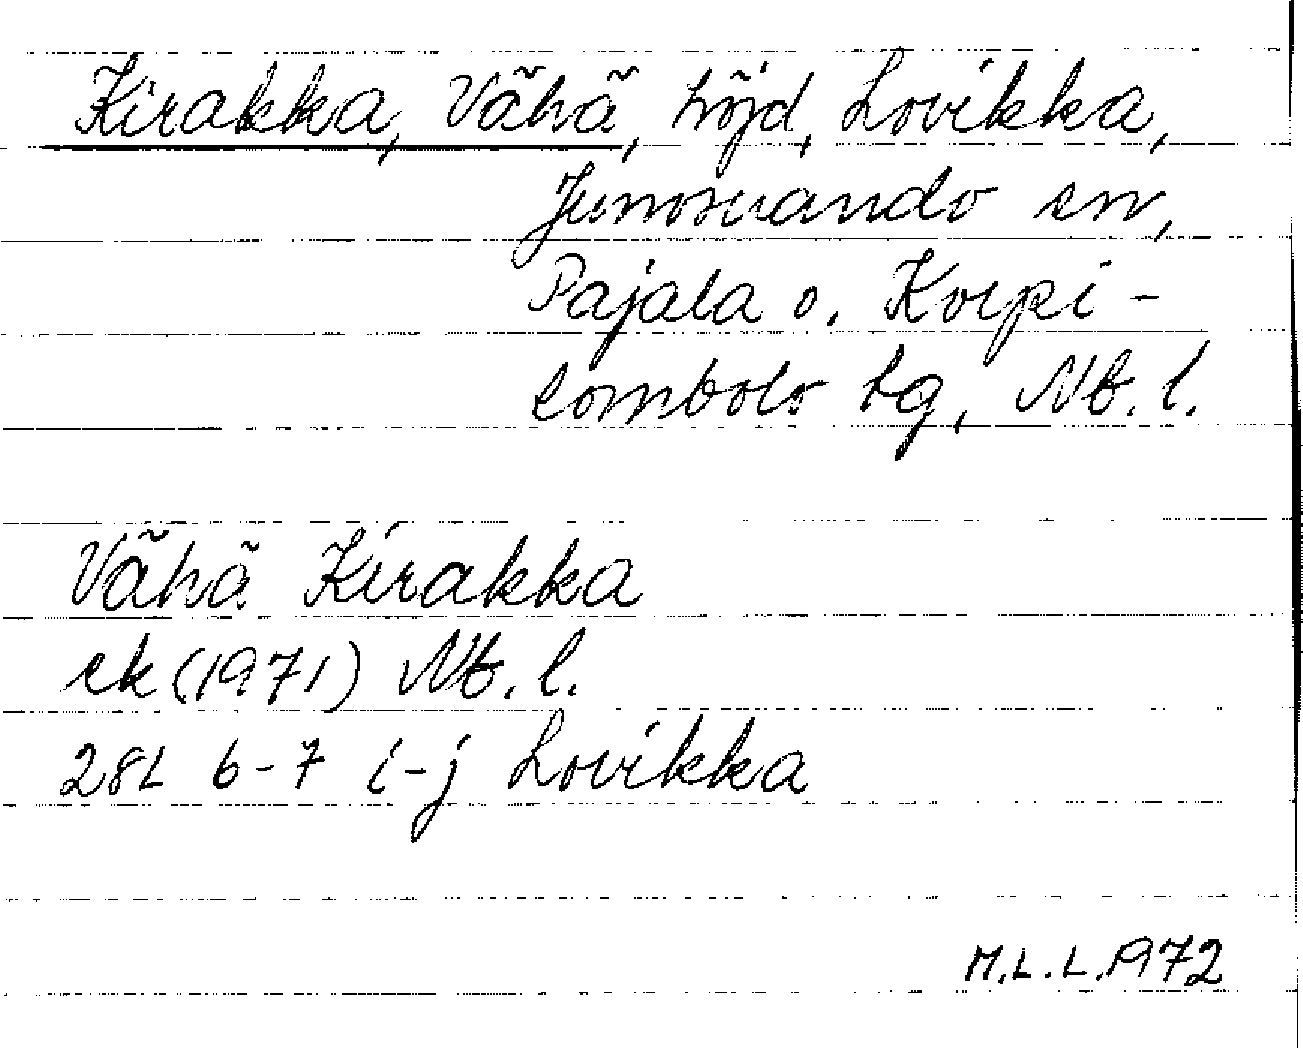 Kirakka, Vähä, höjd, Lovikka,
Junosuando sn,
Pajala o. Korpi-
lombolo tg, Nb. l.
Vähä Kirakka
ek (1971) Nb. l.
28L 6-7 i-j Lovikka
M.L.L. 1972